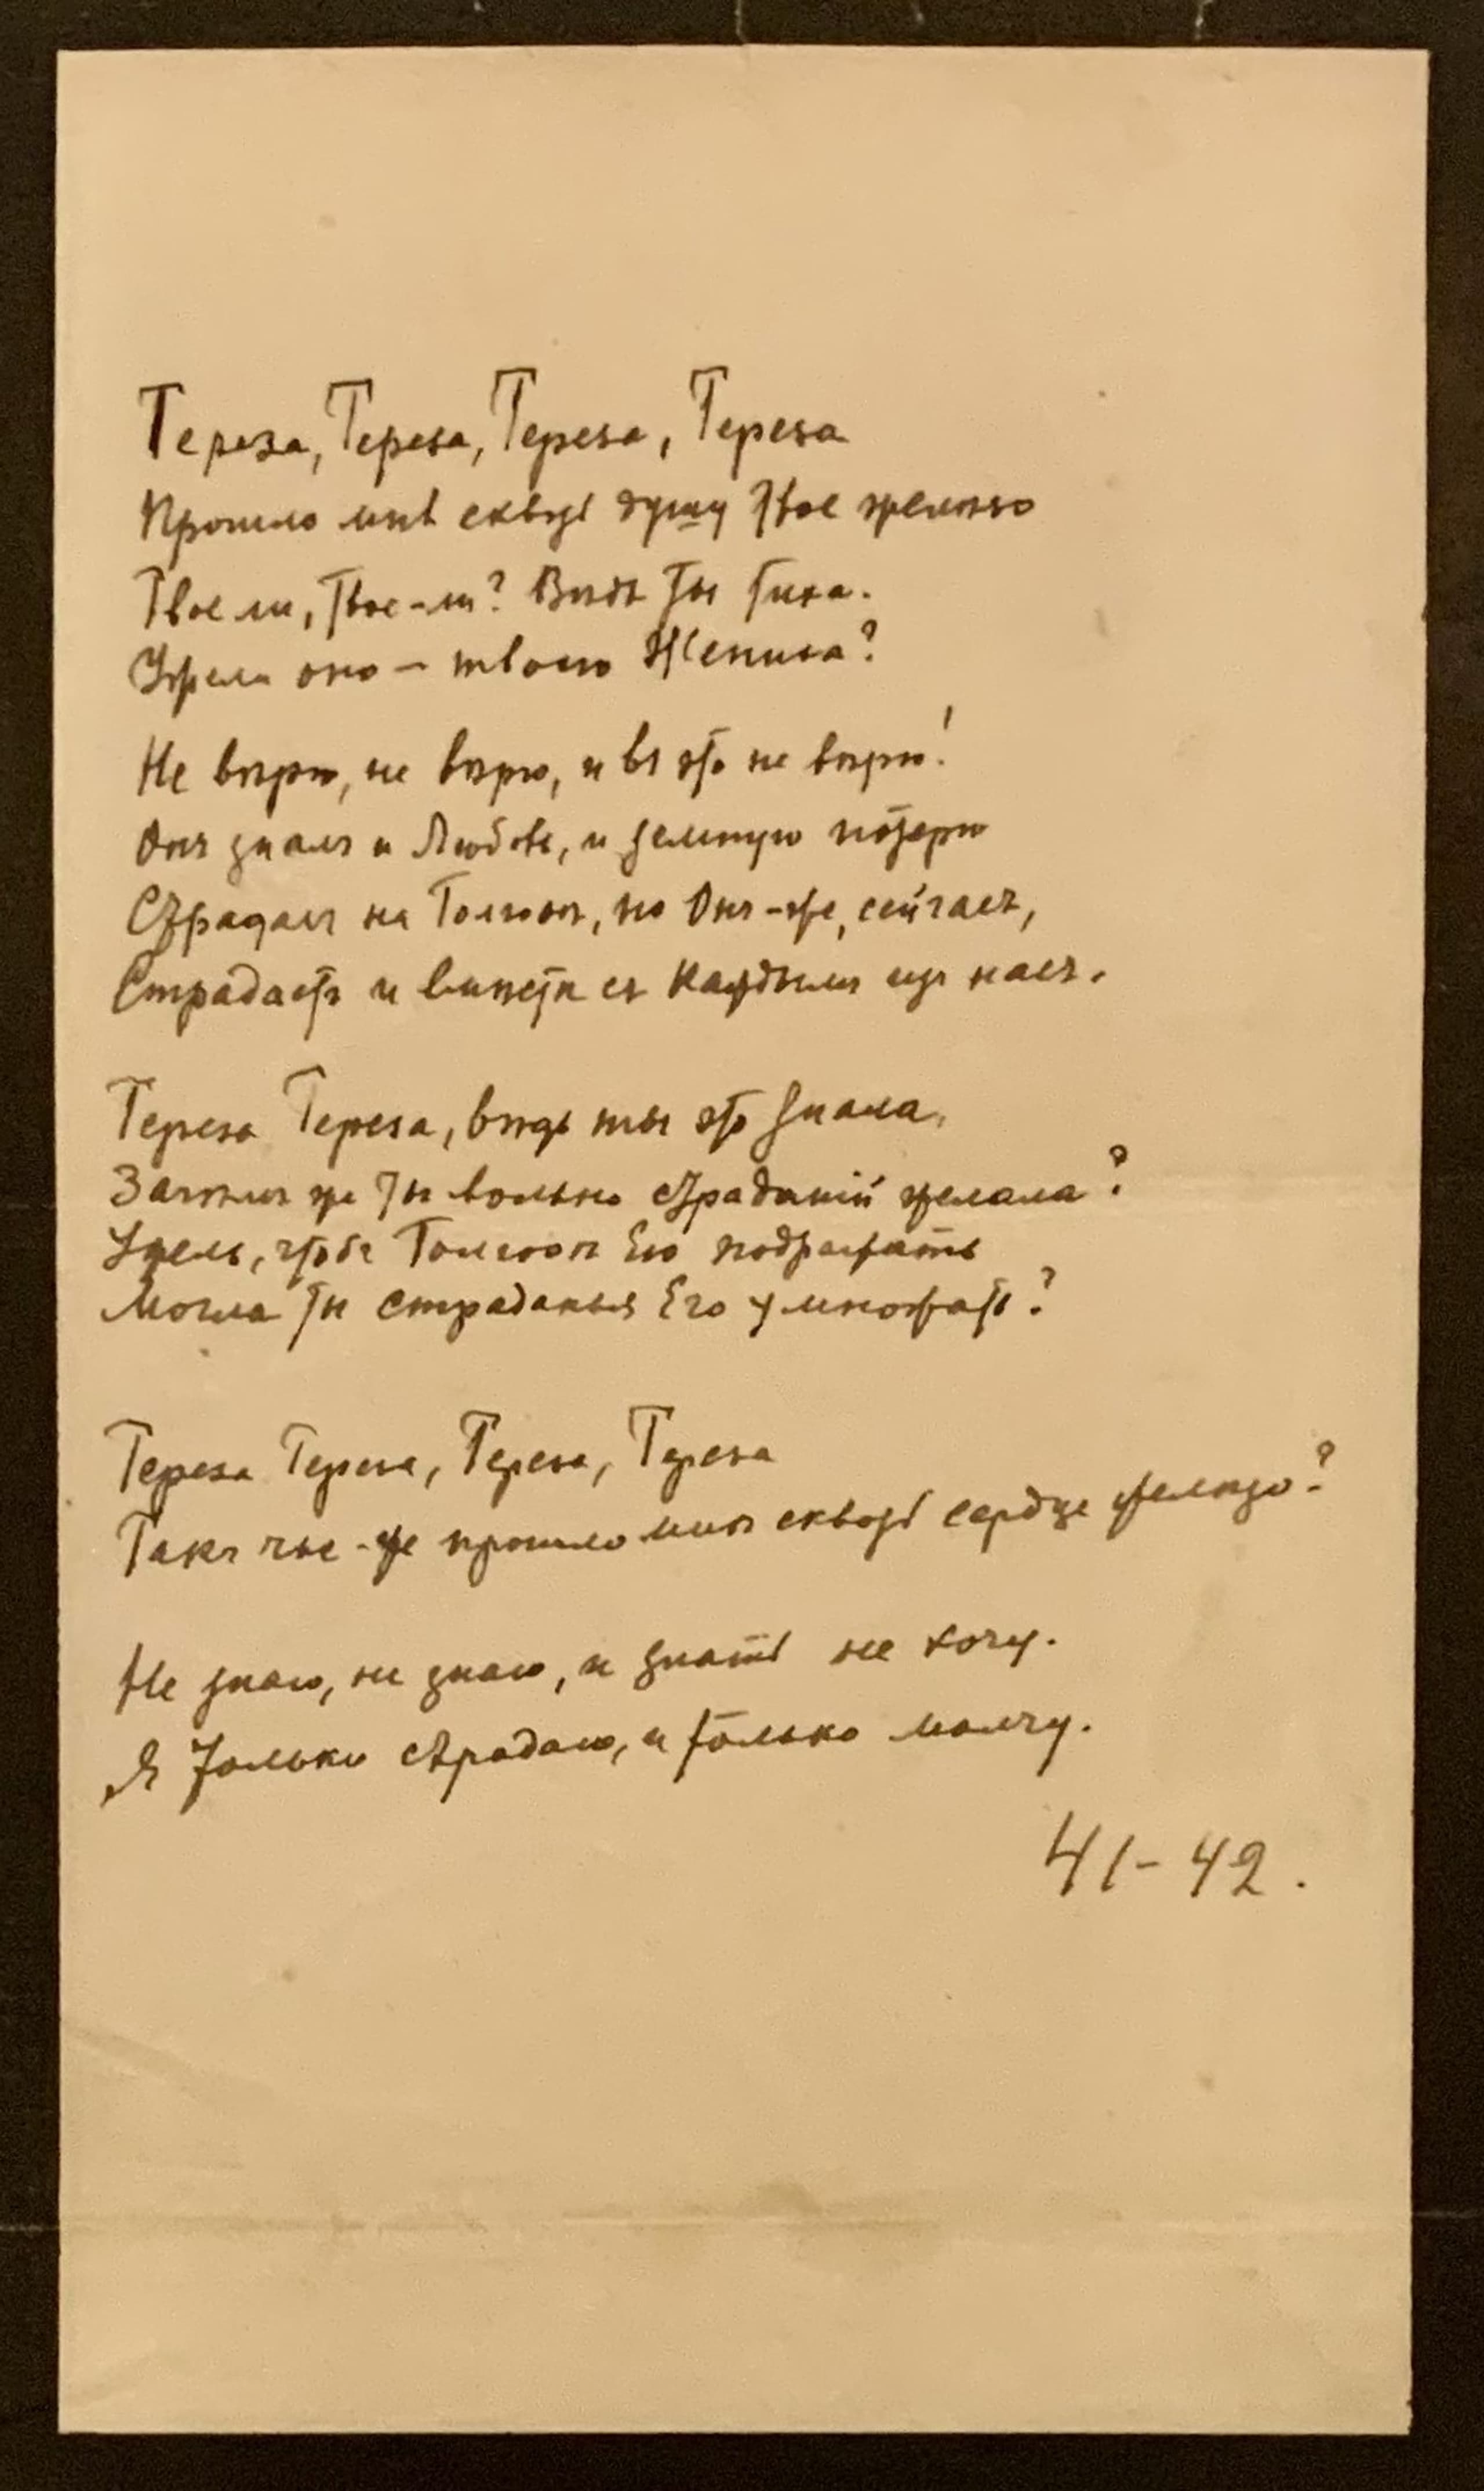 Тереза, Тереза, Тереза, Тереза
Прошло мнѣ сквозь душу Твое желѣзо
Твое ли, Твое-ли? Вѣдь Ты тиха.
Ужели оно – твоего Жениха?
Не вѣрю, не вѣрю, и въ это не вѣрю!
Онъ зналъ и Любовь, и земную потерю
Страдалъ на Голгоѳѣ, но Онъ-же, сейчасъ,
Страдаетъ и вмѣстѣ съ каждымъ изъ насъ.
Тереза Тереза, вѣдь ты это знала,
Зачѣмъ же Ты вольно страданій желала?
Ужель, чтобъ Голгоѳѣ Его подражать
Могла Ты страданья Его умножать?
Тереза Тереза, Тереза, Тереза
Такъ чье-же прошло мнѣ сквозь сердце желѣзо?
Не знаю, не знаю, и знать не хочу.
Я только страдаю, и только молчу.
41-42.